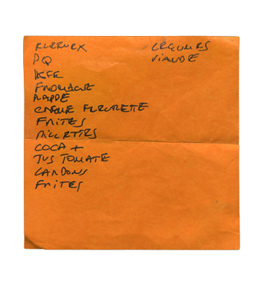 KLEENEX
PQ
FROMAGE
RAPPE
CREME FLEURETTE
FRITES
COCA +
JUS TOMATE
LARDONS
FRITES
LEGUMES
VIANDE